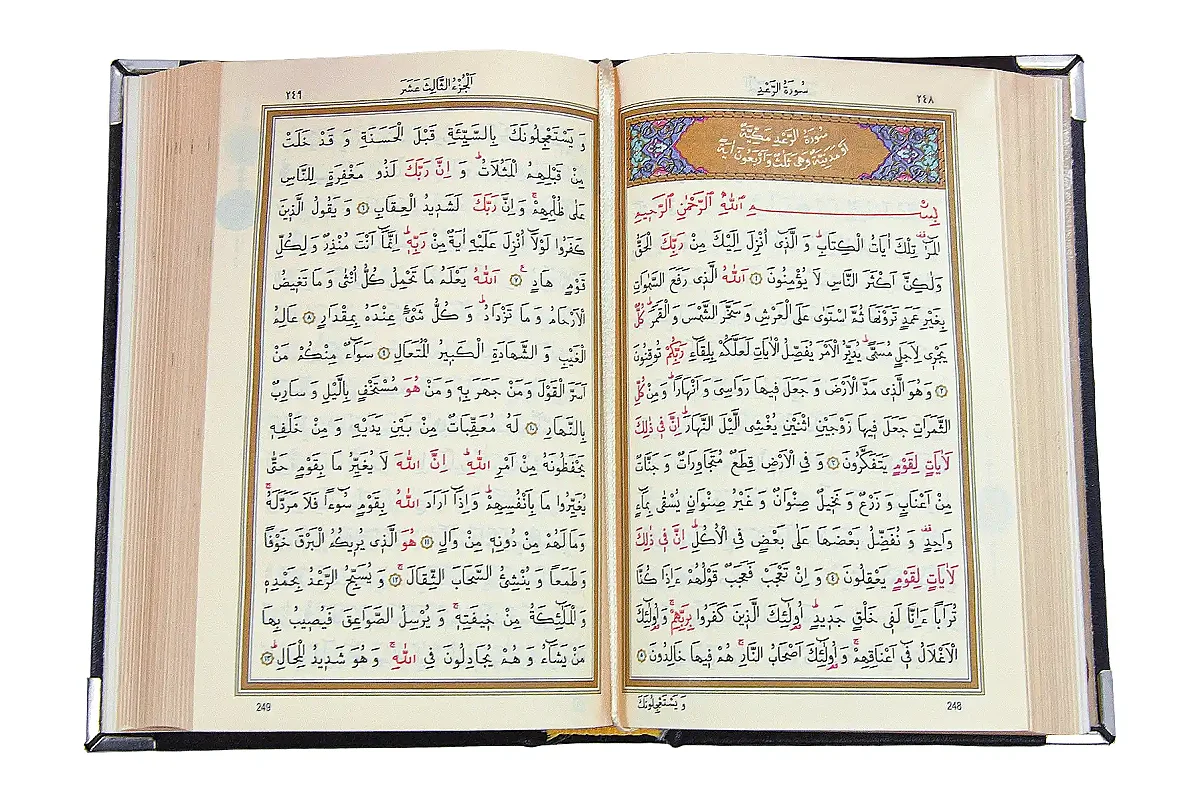 ٢٤٨
سُورَةُ الرَّعْدِ
سُورَةُ الرَّعْدِ مَكِّيَّةٌ
اَوْ مَدَنِيَّةٌ وَهِىَ ثَلٰثٌ وَاَرْبَعُونَ اٰيَةً
بِسْــــــمِ اللّٰهِ الرَّحْمٰنِ الرَّحٖيمِ
الٓمٓرٰ تِلْكَ اٰيَاتُ الْكِتَابِؕ وَ الَّذٖٓى اُنْزِلَ اِلَيْكَ مِنْ رَبِّكَ الْحَقُّ
وَلٰكِنَّ اَكْثَرَ النَّاسِ لَا يُؤْمِنُونَ ﴿١﴾ اَللّٰهُ الَّذٖى رَفَعَ السَّمٰوَاتِ
بِغَيْرِ عَمَدٍ تَرَوْنَهَا ثُمَّ اسْتَوٰى عَلَى الْعَرْشِ وَ سَخَّرَ الشَّمْسَ وَ الْقَمَرَؕ كُلٌّ
يَجْرٖى لِاَجَلٍ مُسَمًّىؕ يُدَبِّرُ الْاَمْرَ يُفَصِّلُ الْاٰيَاتِ لَعَلَّكُمْ بِلِقَٓاءِ رَبِّكُمْ تُوقِنُونَ
﴿٢﴾ وَ هُوَ الَّذٖى مَدَّ الْاَرْضَ وَ جَعَلَ فٖيهَا رَوَاسِىَ وَ اَنْهَارًاؕ وَ مِنْ كُلِّ
الثَّمَرَاتِ جَعَلَ فٖيهَا زَوْجَيْنِ اثْنَيْنِ يُغْشِى الَّيْلَ النَّهَارَؕ اِنَّ فٖى ذٰلِكَ
لَاٰيَاتٍ لِقَوْمٍ يَتَفَكَّرُونَ ﴿٣﴾ وَ فِى الْاَرْضِ قِطَعٌ مُتَجَاوِرَاتٌ وَ جَنَّاتٌ
مِنْ اَعْنَابٍ وَ زَرْعٌ وَ نَخٖيلٌ صِنْوَانٌ وَ غَيْرُ صِنْوَانٍ يُسْقٰى بِمَٓاءٍ
وَاحِدٍ وَ نُفَضِّلُ بَعْضَهَا عَلٰى بَعْضٍ فِى الْاُكُلِؕ اِنَّ فٖى ذٰلِكَ
لَاٰيَاتٍ لِقَوْمٍ يَعْقِلُونَ ﴿٤﴾ وَ اِنْ تَعْجَبْ فَعَجَبٌ قَوْلُهُمْ ءَاِذَا كُنَّا
تُرَابًا ءَاِنَّا لَفٖى خَلْقٍ جَدٖيدٍؕ اُولٰٓئِكَ الَّذٖينَ كَفَرُوا بِرَبِّهِمْۚ وَ اُولٰٓئِكَ
الْاَغْلَالُ فٖٓى اَعْنَاقِهِمْۚ وَ اُولٰٓئِكَ اَصْحَابُ النَّارِۚ هُمْ فٖيهَا خَالِدُونَ ﴿٥﴾
وَ يَسْتَعْجِلُونَكَ
248
اَلْجُزْءُ الثَّالِثَ عَشَرَ
٢٤٩
وَ يَسْتَعْجِلُونَكَ بِالسَّيِّئَةِ قَبْلَ الْحَسَنَةِ وَ قَدْ خَلَتْ
مِنْ قَبْلِهِمُ الْمَثُلَاتُؕ وَ اِنَّ رَبَّكَ لَذُو مَغْفِرَةٍ لِلنَّاسِ
عَلٰى ظُلْمِهِمْۚ وَ اِنَّ رَبَّكَ لَشَدٖيدُ الْعِقَابِ ﴿٦﴾ وَ يَقُولُ الَّذٖينَ
كَفَرُوا لَوْلَٓا اُنْزِلَ عَلَيْهِ اٰيَةٌ مِنْ رَبِّهٖؕ اِنَّمَٓا اَنْتَ مُنْذِرٌ وَ لِكُلِّ
قَوْمٍ هَادٍ ﴿٧﴾ اَللّٰهُ يَعْلَمُ مَا تَحْمِلُ كُلُّ اُنْثٰى وَ مَا تَغٖيضُ
الْاَرْحَامُ وَ مَا تَزْدَادُؕ وَ كُلُّ شَىْءٍ عِنْدَهُ بِمِقْدَارٍ ﴿٨﴾ عَالِمُ
الْغَيْبِ وَ الشَّهَادَةِ الْكَبٖيرُ الْمُتَعَالِ ﴿٩﴾ سَوَٓاءٌ مِنْكُمْ مَنْ
اَسَرَّ الْقَوْلَ وَ مَنْ جَهَرَ بِهٖ وَ مَنْ هُوَ مُسْتَخْفٍ بِالَّيْلِ وَ سَارِبٌ
بِالنَّهَارِ ﴿١٠﴾ لَهُ مُعَقِّبَاتٌ مِنْ بَيْنِ يَدَيْهِ وَ مِنْ خَلْفِهٖ
يَحْفَظُونَهُ مِنْ اَمْرِ اللّٰهِؕ اِنَّ اللّٰهَ لَا يُغَيِّرُ مَا بِقَوْمٍ حَتّٰى
يُغَيِّرُوا مَا بِاَنْفُسِهِمْؕ وَ اِذَٓا اَرَادَ اللّٰهُ بِقَوْمٍ سُٓوءًا فَلَا مَرَدَّ لَهُۚ
وَ مَا لَهُمْ مِنْ دُونِهٖ مِنْ وَالٍ ﴿١١﴾ هُوَ الَّذٖى يُرٖيكُمُ الْبَرْقَ خَوْفًا
وَ طَمَعًا وَ يُنْشِئُ السَّحَابَ الثِّقَالَۚ ﴿١٢﴾ وَ يُسَبِّحُ الرَّعْدُ بِحَمْدِهٖ
وَ الْمَلٰٓئِكَةُ مِنْ خٖيفَتِهٖۚ وَ يُرْسِلُ الصَّوَاعِقَ فَيُصٖيبُ بِهَا
مَنْ يَشَٓاءُ وَ هُمْ يُجَادِلُونَ فِى اللّٰهِۚ وَ هُوَ شَدٖيدُ الْمِحَالِؕ ﴿١٣﴾
249